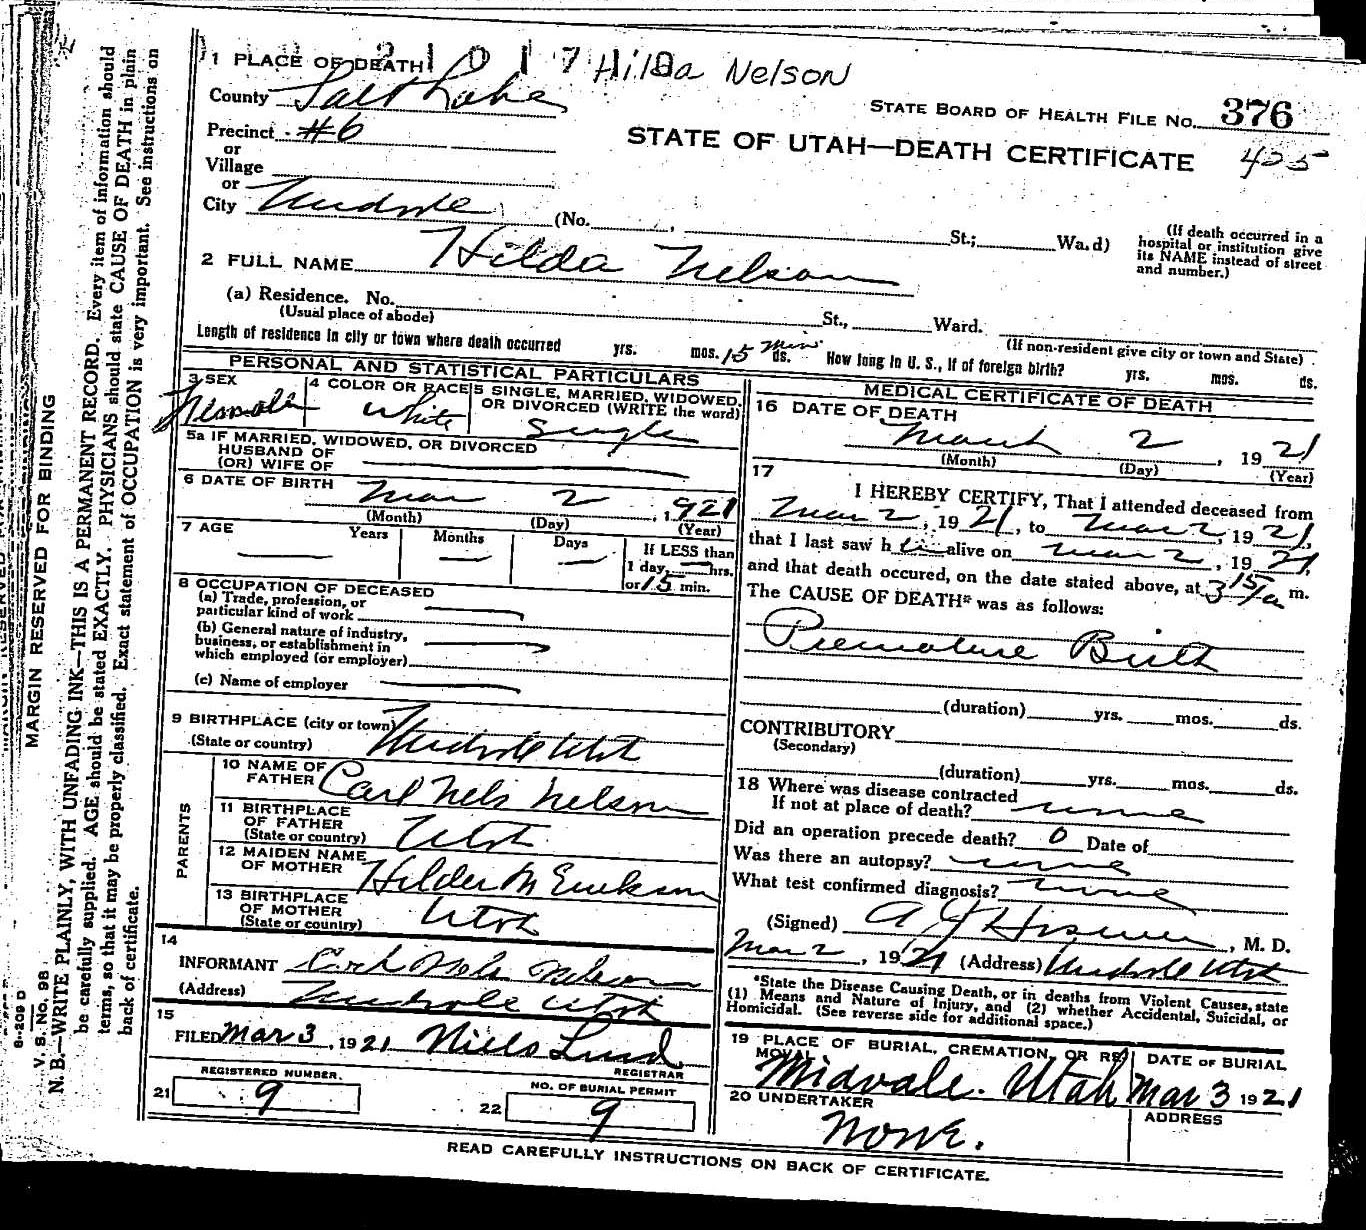 1 PLACE OF DEATH 2 1 0 1 7 Hilda Nelson
County Salt Lake
STATE BOARD OF HEALTH FILE No. 376
Precinct #6
STATE OF UTAH—DEATH CERTIFICATE 425
or
Village
or
City Midvale (No. , St.; Wa.d)
(If death occurred in a hospital or institution give its NAME instead of street and number.)
2 FULL NAME Hilda Nelson
(a) Residence. No. St., Ward.
(Usual place of abode) (If non-resident give city or town and State)
Length of residence in city or town where death occurred yrs. mos. 15 min ds. How long in U. S., if of foreign birth? yrs. mos. ds.
PERSONAL AND STATISTICAL PARTICULARS
3 SEX Female
4 COLOR OR RACE White
5 SINGLE, MARRIED, WIDOWED, OR DIVORCED (WRITE the word) Single
5a IF MARRIED, WIDOWED, OR DIVORCED
HUSBAND OF
(OR) WIFE OF
6 DATE OF BIRTH Mar 2, 1921
(Month) (Day) (Year)
7 AGE Years Months Days
If LESS than
1 day, hrs.
or 15 min.
8 OCCUPATION OF DECEASED
(a) Trade, profession, or
particular kind of work
(b) General nature of industry,
business, or establishment in
which employed (or employer)
(c) Name of employer
9 BIRTHPLACE (city or town)
(State or country) Midvale Utah
PARENTS
10 NAME OF
FATHER Carl Nels Nelson
11 BIRTHPLACE
OF FATHER
(State or country) Utah
12 MAIDEN NAME
OF MOTHER Hilder M Erickson
13 BIRTHPLACE
OF MOTHER
(State or country) Utah
14
INFORMANT Carl Nels Nelson
(Address) Midvale Utah
15
FILED Mar 3, 1921 Niels Lind
REGISTRAR
REGISTERED NUMBER.
21 9
NO. OF BURIAL PERMIT
22 9
MEDICAL CERTIFICATE OF DEATH
16 DATE OF DEATH
March 2, 1921
(Month) (Day) (Year)
17
I HEREBY CERTIFY, That I attended deceased from
Mar 2, 1921, to Mar 2, 1921,
that I last saw h er alive on Mar 2, 1921,
and that death occured, on the date stated above, at 3 15/a m.
The CAUSE OF DEATH* was as follows:
Premature Birth
(duration) yrs. mos. ds.
CONTRIBUTORY
(Secondary)
(duration) yrs. mos. ds.
18 Where was disease contracted
If not at place of death? none
Did an operation precede death? 0 Date of
Was there an autopsy? none
What test confirmed diagnosis? none
(Signed) A J Hosmer, M. D.
Mar 2, 1921 (Address) Midvale Utah
*State the Disease Causing Death, or in deaths from Violent Causes, state
(1) Means and Nature of Injury, and (2) whether Accidental, Suicidal, or
Homicidal. (See reverse side for additional space.)
19 PLACE OF BURIAL, CREMATION, OR RE-
MOVAL Midvale. Utah
DATE OF BURIAL
Mar 3 1921
20 UNDERTAKER
None.
ADDRESS
READ CAREFULLY INSTRUCTIONS ON BACK OF CERTIFICATE.
MARGIN RESERVED FOR BINDING
V. S. No. 98
N. B.—WRITE PLAINLY, WITH UNFADING INK—THIS IS A PERMANENT RECORD. Every item of information should
be carefully supplied. AGE should be stated EXACTLY. PHYSICIANS should state CAUSE OF DEATH in plain
terms, so that it may be properly classified. Exact statement of OCCUPATION is very important. See instructions on
back of certificate.